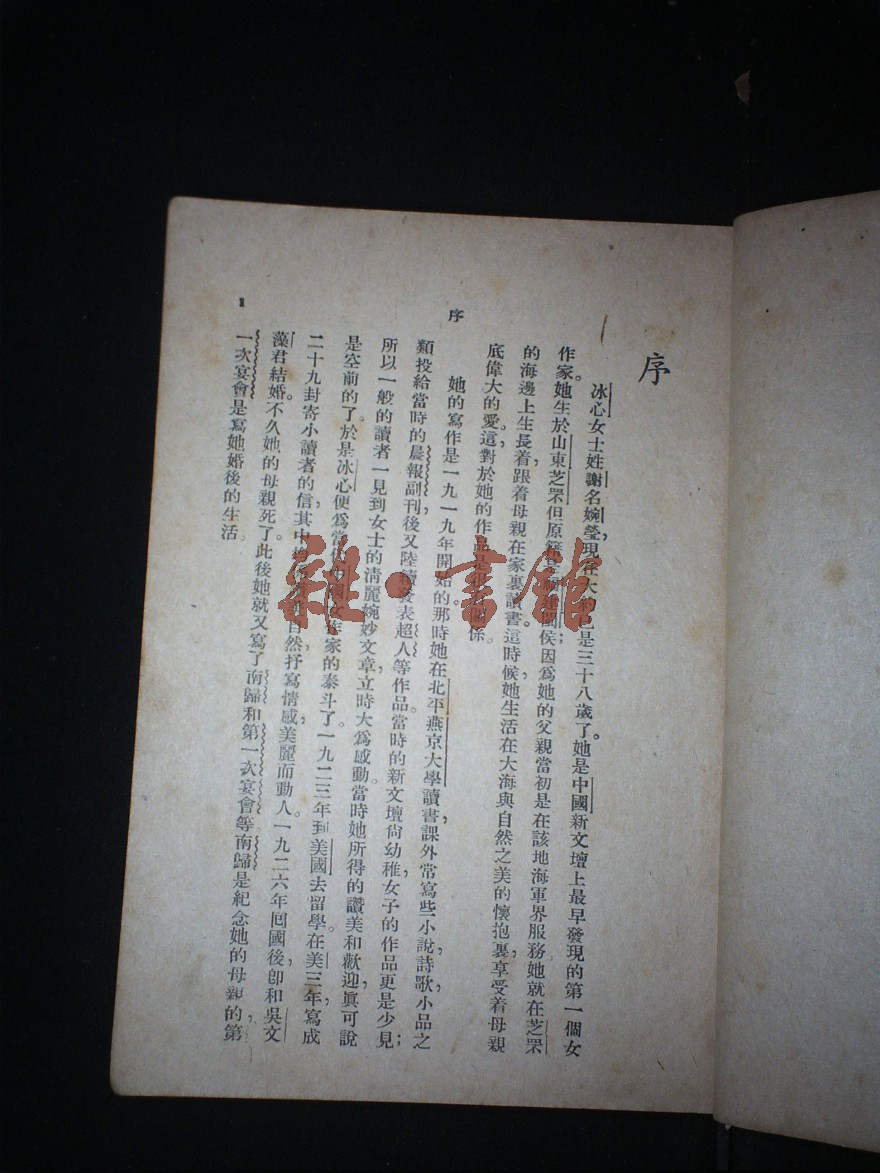 序
冰心女士姓謝名婉瑩，現在大約已是三十八歲了。她是中國新文壇上最早發現的第一個女
作家。她生於山東芝罘，但原籍是福建閩侯；因爲她的父親當初是在該地海軍界服務，她就在芝罘
的海邊上生長着，跟着母親在家裏讀書。這時候她生活在大海與自然之美的懷抱裏，享受着母親
底偉大的愛。這對於她的作品是很有關係。
她的寫作是一九一九年開始的。那時她在北平燕京大學讀書，課外常寫些小說，詩歌，小品之
類投給當時的晨報副刊，後又陸續發表超人等作品。當時的新文壇尙幼稚，女子的作品更是少見；
所以一般的讀者一見到女士的清麗婉妙文章，立時大爲感動。當時她所得的讚美和歡迎，眞可說
是空前的了。於是冰心便爲當代中國女作家的泰斗了。一九二三年到美國去留學。在美三年，寫成
二十九封寄小讀者的信，其中自然，抒寫情感，美麗而動人。一九二六年囘國後，卽和吳文
藻君結婚。不久她的母親死了，此後她就又寫了南歸和第一次宴會等，南歸是紀念她的母親的，第
一次宴會是寫她婚後的生活。
序
1
雜·書館